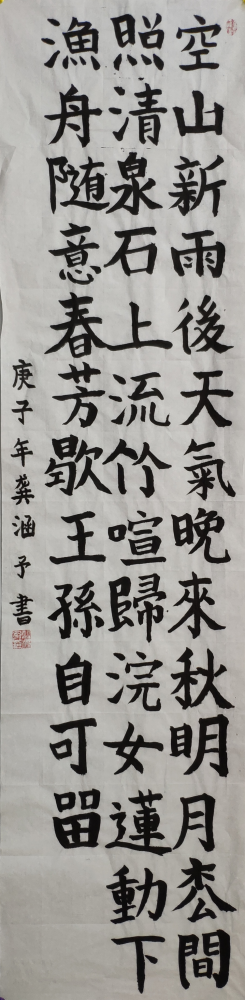 空山新雨後天氣晚來秋明月枩間
照清泉石上流竹喧歸浣女蓮動下
漁舟随意春芳歇王孫自可留
庚子年龚涵予書